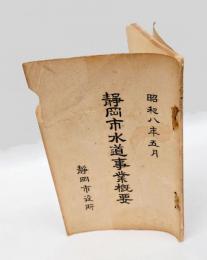 昭和八年五月
静岡市水道事業概要
静岡市役所